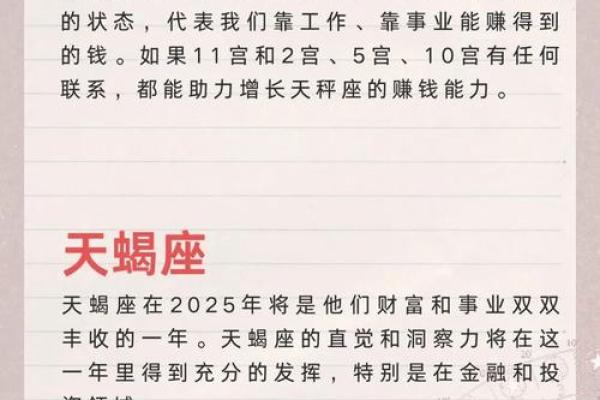 的状态，代表我们靠工作、靠事业能赚得到
的钱。如果11宫和2宫、5宫、10宫有任何
联系，都能助力增长天秤座的赚钱能力。
天蝎座
天蝎座在2025年将是他们财富和事业双双
丰收的一年。天蝎座的直觉和洞察力将在这
一年里得到充分的发挥，特别是在金融和投